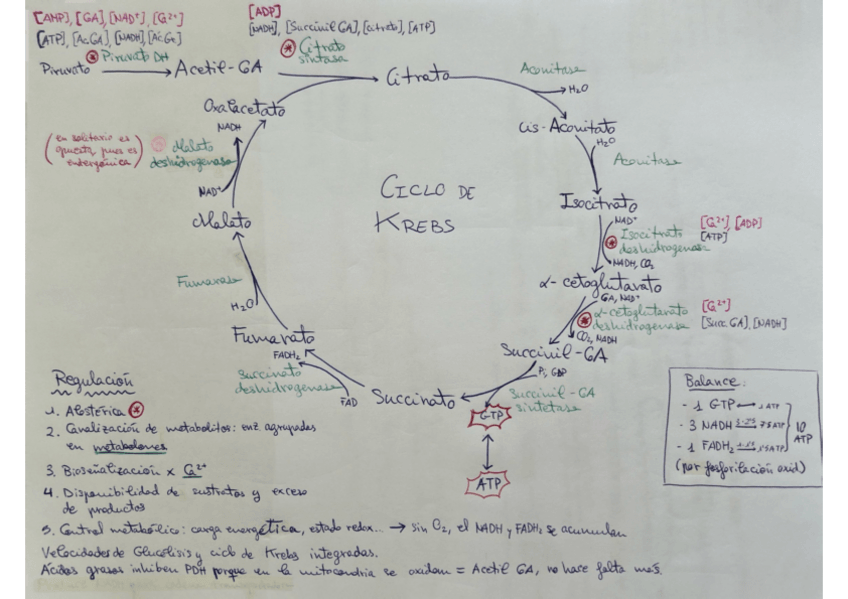 [AMP], [CoA], [NAD⁺], [Ca²⁺]
[ATP], [Ac.CoA], [NADH], [Ác.Gr.]
* Piruvato DH
Piruvato → Acetil-CoA
[ADP]
[NADH], [Succinil CoA], [citrato], [ATP]
* Citrato
sintasa
Citrato
Aconitasa
H₂O
Cis-Aconitato
H₂O
Aconitasa
Isocitrato
NAD⁺
* Isocitrato
deshidrogenasa
NADH, CO₂
[Ca²⁺], [ADP]
[ATP]
α-cetoglutarato
CoA, NAD⁺
* α-cetoglutarato
deshidrogenasa
CO₂, NADH
[Ca²⁺]
[Succ. CoA], [NADH]
Succinil-CoA
Pi, GDP
Succinil-CoA
sintetasa
GTP
ATP
Succinato
FAD
Succinato
deshidrogenasa
FADH₂
Fumarato
H₂O
Fumarasa
Malato
NAD⁺
Malato
deshidrogenasa
(en solitario es
opuesta, pues es
endergónica)
NADH
Oxalacetato
CICLO DE
KREBS
Regulación
1. Alostérica *
2. Canalización de metabolitos: enz agrupadas
en metabolones
3. Bioseñalización x Ca²⁺
4. Disponibilidad de sustratos y exceso
de productos
5. Control metabólico: carga energética, estado redox... → sin O₂, el NADH y FADH₂ se acumulan
Velocidades de Glucólisis y ciclo de Krebs integradas.
Ácidos grasos inhiben PDH porque en la mitocondria se oxidan = Acetil CoA, no hace falta más.
Balance:
- 1 GTP ↔ 1 ATP
- 3 NADH 7'5 ATP
- 1 FADH₂ 1'5 ATP
10
ATP
(por fosforilación oxid)